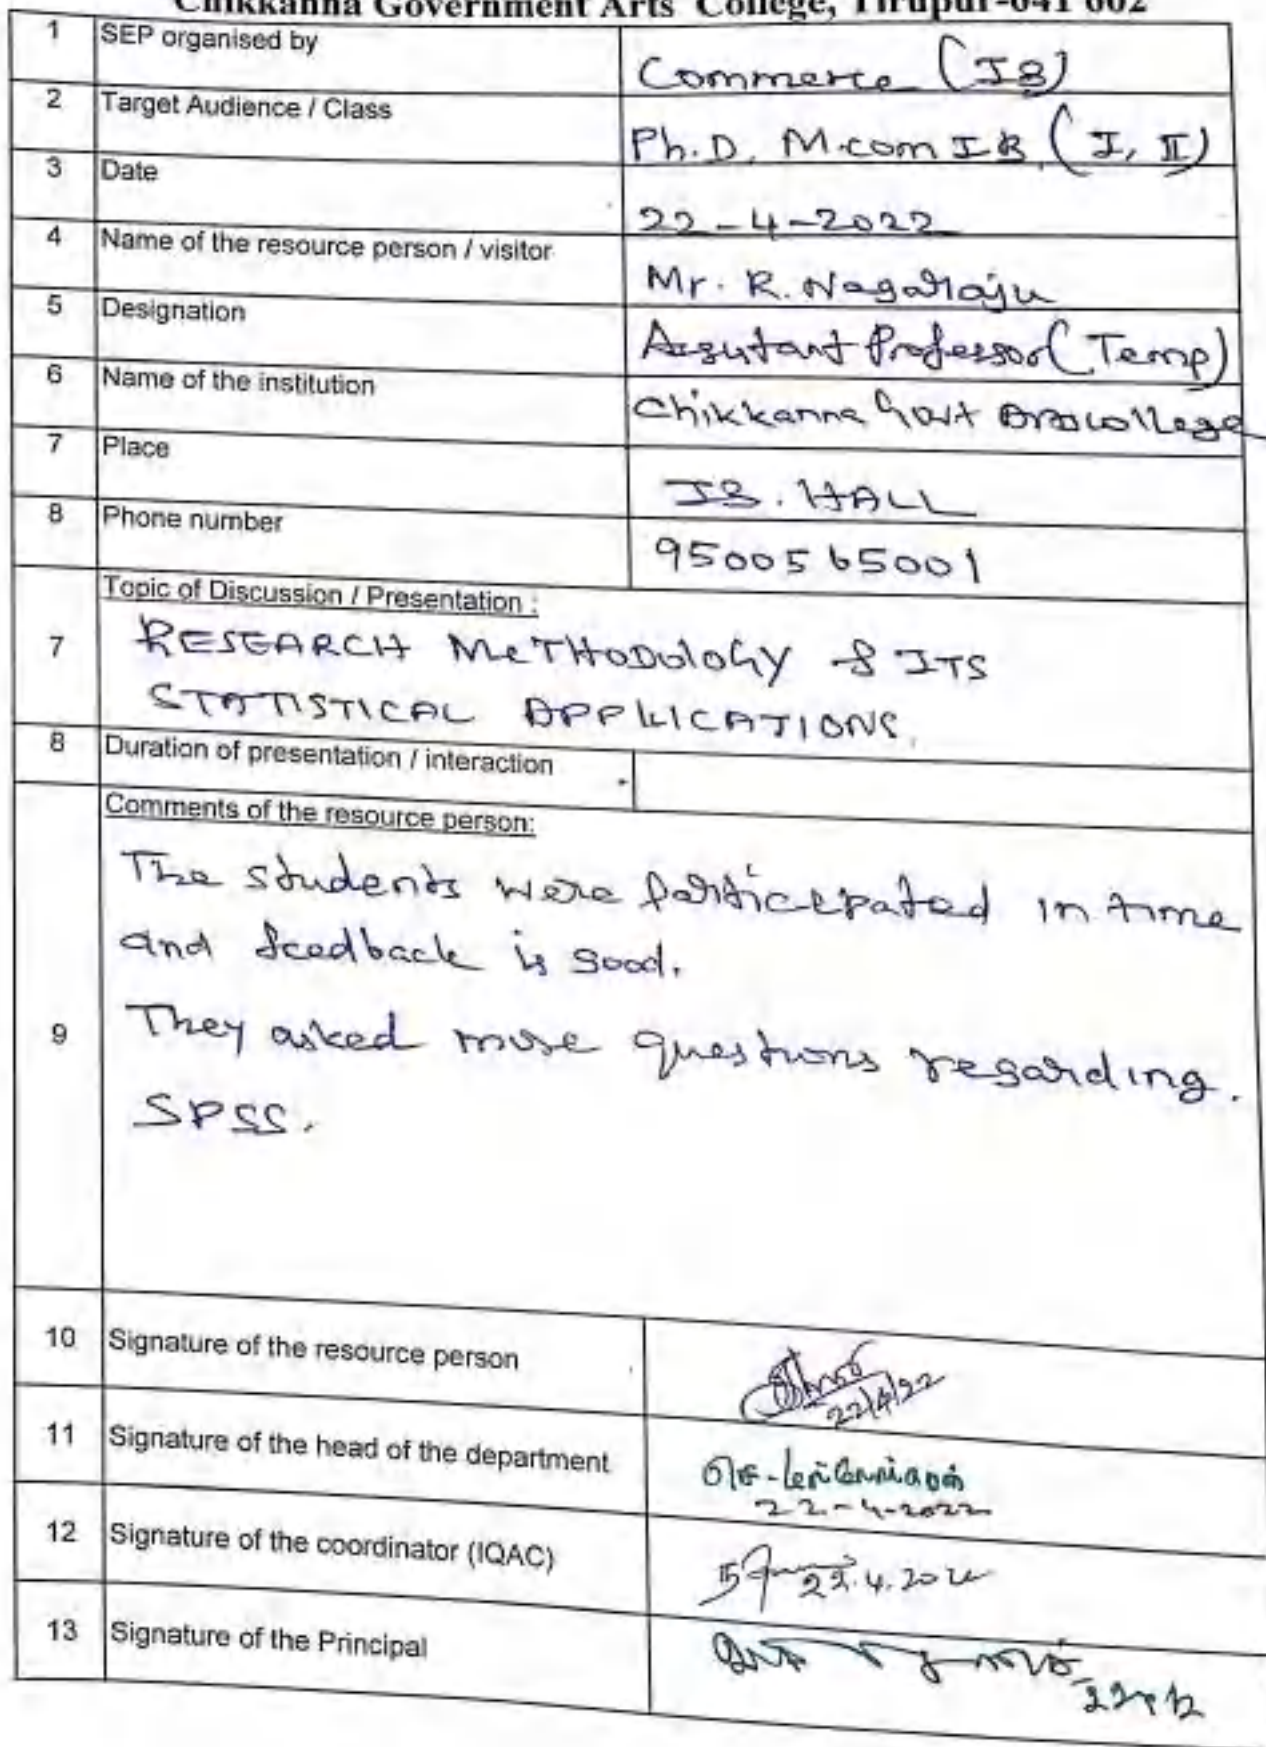 Chikkanna Government Arts College, Tirupur-641 602
1 SEP organised by Commerce (IB)
2 Target Audience / Class Ph.D, M.com IB, (I, II)
3 Date 22-4-2022
4 Name of the resource person / visitor Mr. R. Nagaraju
5 Designation Assistant Professor (Temp)
6 Name of the institution Chikkanna Govt Arts college
7 Place IB. HALL
8 Phone number 9500565001
Topic of Discussion / Presentation :
7 RESEARCH METHODOLOGY & ITS
STATISTICAL APPLICATIONS.
8 Duration of presentation / interaction
Comments of the resource person:
The students were participated in time
and feedback is good.
9 They asked more questions regarding.
SPSS.
10 Signature of the resource person
22/4/22
11 Signature of the head of the department
22-4-2022
12 Signature of the coordinator (IQAC) 22.4.2022
13 Signature of the Principal